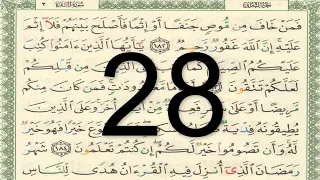 فَمَنْ خَافَ مِن مُّوصٍ جَنَفًا أَوْ إِثْمًا فَأَصْلَحَ بَيْنَهُمْ فَلَآ إِثْمَ
عَلَيْهِ إِنَّ ٱللَّهَ غَفُورٌ رَّحِيمٌ ١٨٢ يَٰٓأَيُّهَا ٱلَّذِينَ ءَامَنُوا۟ كُتِبَ
عَلَيْكُمُ ٱلصِّيَامُ مِن قَبْلِكُمْ
لَعَلَّكُمْ تَتَّقُونَ مَّعْدُودَٰتٍ فَمَن كَانَ مِنكُم
مَّرِيضًا أَوْ أَيَّامٍ أُخَرَ وَعَلَى ٱلَّذِينَ
يُطِيقُونَهُۥ فِدْيَةٌ فَهُوَ خَيْرٌ
لَّهُۥ وَأَن تَصُومُوا۟ خَيْرٌ لَّكُمْ إِن كُنتُمْ تَعْلَمُونَ ١٨٤ شَهْرُ
رَمَضَانَ ٱلَّذِىٓ أُنزِلَ فِيهِ ٱلْقُرْءَانُ هُدًى لِّلنَّاسِ
28